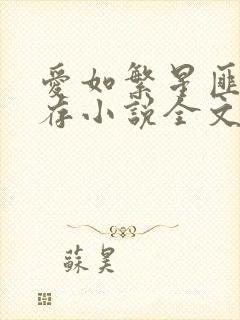 愛如繁星匪
存小說全文
蘇昊